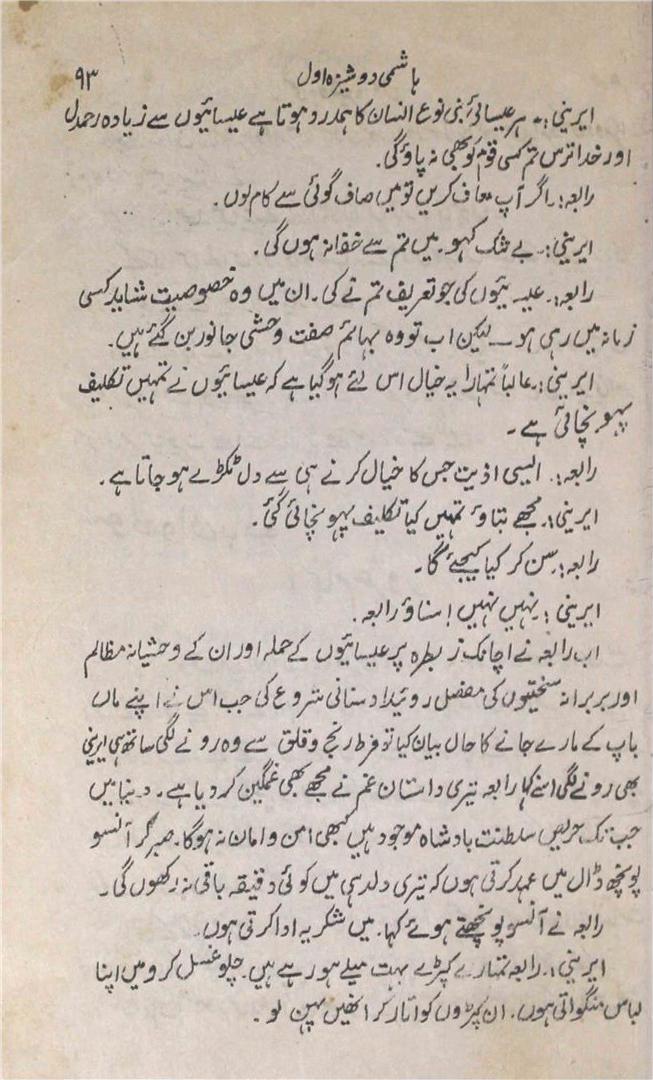 ہاشمی دوشیزہ اول ۹۳
ایرینی:۔ ہر عیسائی بنی نوع انسان کا ہمدرد ہوتا ہے عیسائیوں سے زیادہ رحمدل
اور خدا ترس تم کسی قوم کو بھی نہ پاؤ گی۔
رابعہ:۔ اگر آپ معاف کریں تو میں صاف گوئی سے کام لوں۔
ایرینی:۔ بے شک کہو۔ میں تم سے خفا نہ ہوں گی۔
رابعہ:۔ عیسائیوں کی جو تعریف تم نے کی۔ ان میں وہ خصوصیت شاید کسی
زمانہ میں رہی ہو ــ لیکن اب تو وہ بہائم صفت وحشی جانور بن گئے ہیں۔
ایرینی:۔ غالباً تمہارا یہ خیال اس لئے ہو گیا ہے کہ عیسائیوں نے تمہیں تکلیف
پہونچائی ہے۔
رابعہ:۔ ایسی اذیت جس کا خیال کرنے ہی سے دل ٹکڑے ہو جاتا ہے۔
ایرینی:۔ مجھے بتاؤ تمہیں کیا تکلیف پہونچائی گئی۔
رابعہ:۔ سن کر کیا کیجئے گا۔
ایرینی:۔ نہیں نہیں! سناؤ رابعہ۔
اب رابعہ نے اچانک زبطرہ پر عیسائیوں کے حملہ اور ان کے وحشیانہ مظالم
اور بربرانہ سختیوں کی مفصل روئیداد سنانی شروع کی جب اس نے اپنے ماں
باپ کے مارے جانے کا حال بیان کیا تو فرط رنج و قلق سے وہ رونے لگی ساتھ ہی ایرینی
بھی رونے لگی اسنے کہا رابعہ تیری داستان غم نے مجھے بھی غمگین کر دیا ہے۔ دنیا میں
جب تک حریص سلطنت بادشاہ موجود ہیں کبھی امن و امان نہ ہوگا۔ صبر کر آنسو
پونچھ ڈال میں عہد کرتی ہوں کہ تیری دلدہی میں کوئی دقیقہ باقی نہ رکھوں گی۔
رابعہ نے آنسو پونچھتے ہوئے کہا۔ میں شکریہ ادا کرتی ہوں۔
ایرینی:۔ رابعہ تمہارے کپڑے بہت میلے ہو رہے ہیں۔ چلو غسل کرو میں اپنا
لباس منگواتی ہوں۔ ان کپڑوں کو اتار کر انھیں پہن لو۔